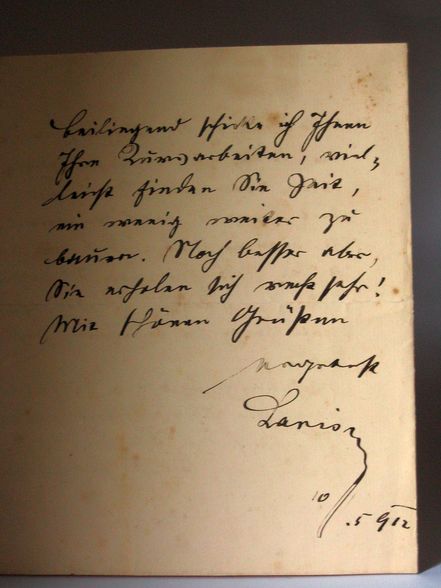 beiliegend schicke ich Ihnen
Ihre Kursarbeiten, viel-
leicht finden Sie Zeit,
ein wenig weiter zu
bauen. Noch besser aber,
Sie erholen sich recht sehr!
Mit schönen Grüßen
10
.5 912